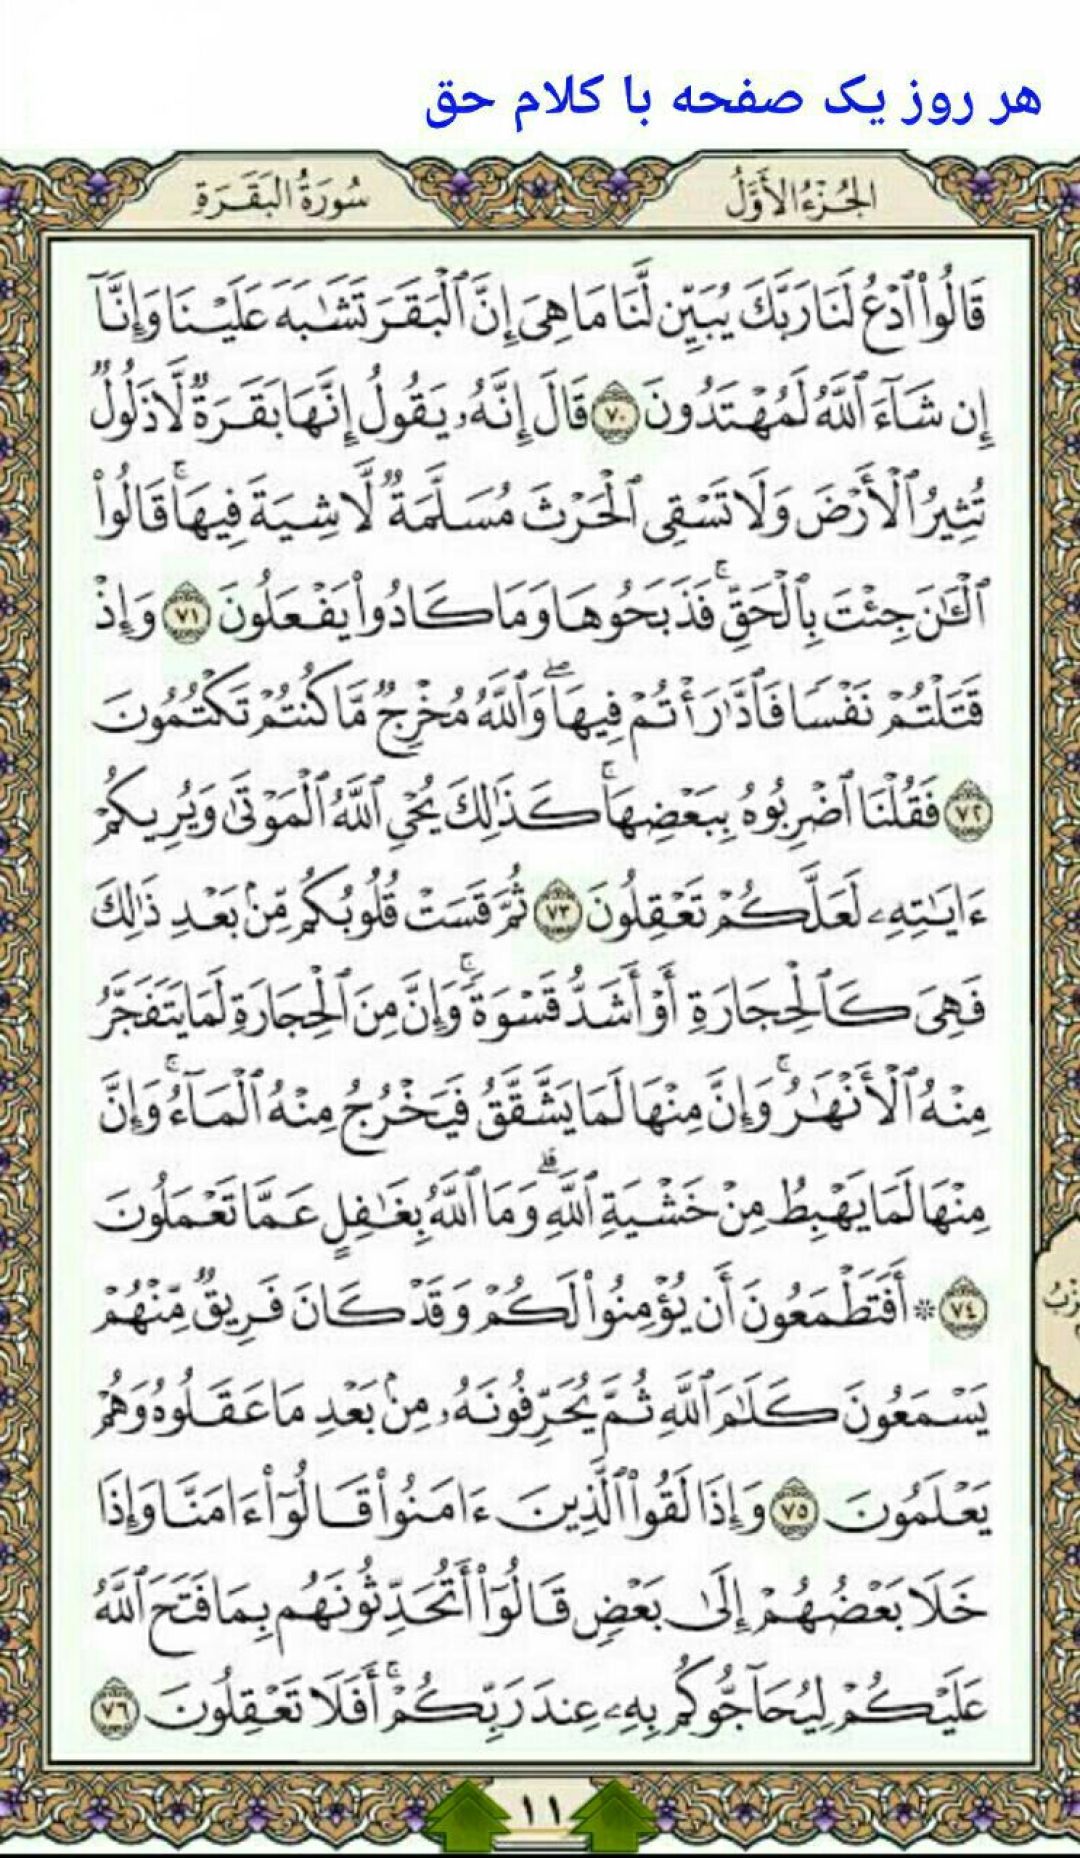 هر روز یک صفحه با کلام حق
الجُزْءُ الأَوَّلُ
سُورَةُ البَقَرَةِ
قَالُوا۟ ٱدْعُ لَنَا رَبَّكَ يُبَيِّن لَّنَا مَا هِىَ إِنَّ ٱلْبَقَرَ تَشَٰبَهَ عَلَيْنَا وَإِنَّآ
إِن شَآءَ ٱللَّهُ لَمُهْتَدُونَ ٧٠ قَالَ إِنَّهُۥ يَقُولُ إِنَّهَا بَقَرَةٌ لَّا ذَلُولٌ
تُثِيرُ ٱلْأَرْضَ وَلَا تَسْقِى ٱلْحَرْثَ مُسَلَّمَةٌ لَّا شِيَةَ فِيهَا ۚ قَالُوا۟
ٱلْـَٰٔنَ جِئْتَ بِٱلْحَقِّ ۚ فَذَبَحُوهَا وَمَا كَادُوا۟ يَفْعَلُونَ ٧١ وَإِذْ
قَتَلْتُمْ نَفْسًا فَٱدَّٰرَْٰٔتُمْ فِيهَا ۖ وَٱللَّهُ مُخْرِجٌ مَّا كُنتُمْ تَكْتُمُونَ
٧٢ فَقُلْنَا ٱضْرِبُوهُ بِبَعْضِهَا ۚ كَذَٰلِكَ يُحْىِ ٱللَّهُ ٱلْمَوْتَىٰ وَيُرِيكُمْ
ءَايَٰتِهِۦ لَعَلَّكُمْ تَعْقِلُونَ ٧٣ ثُمَّ قَسَتْ قُلُوبُكُم مِّنۢ بَعْدِ ذَٰلِكَ
فَهِىَ كَٱلْحِجَارَةِ أَوْ أَشَدُّ قَسْوَةً ۚ وَإِنَّ مِنَ ٱلْحِجَارَةِ لَمَا يَتَفَجَّرُ
مِنْهُ ٱلْأَنْهَٰرُ ۚ وَإِنَّ مِنْهَا لَمَا يَشَّقَّقُ فَيَخْرُجُ مِنْهُ ٱلْمَآءُ ۚ وَإِنَّ
مِنْهَا لَمَا يَهْبِطُ مِنْ خَشْيَةِ ٱللَّهِ ۗ وَمَا ٱللَّهُ بِغَٰفِلٍ عَمَّا تَعْمَلُونَ
٧٤ ۞ أَفَتَطْمَعُونَ أَن يُؤْمِنُوا۟ لَكُمْ وَقَدْ كَانَ فَرِيقٌ مِّنْهُمْ
يَسْمَعُونَ كَلَٰمَ ٱللَّهِ ثُمَّ يُحَرِّفُونَهُۥ مِنۢ بَعْدِ مَا عَقَلُوهُ وَهُمْ
يَعْلَمُونَ ٧٥ وَإِذَا لَقُوا۟ ٱلَّذِينَ ءَامَنُوا۟ قَالُوٓا۟ ءَامَنَّا وَإِذَا
خَلَا بَعْضُهُمْ إِلَىٰ بَعْضٍ قَالُوٓا۟ أَتُحَدِّثُونَهُم بِمَا فَتَحَ ٱللَّهُ
عَلَيْكُمْ لِيُحَآجُّوكُم بِهِۦ عِندَ رَبِّكُمْ ۚ أَفَلَا تَعْقِلُونَ ٧٦
١١